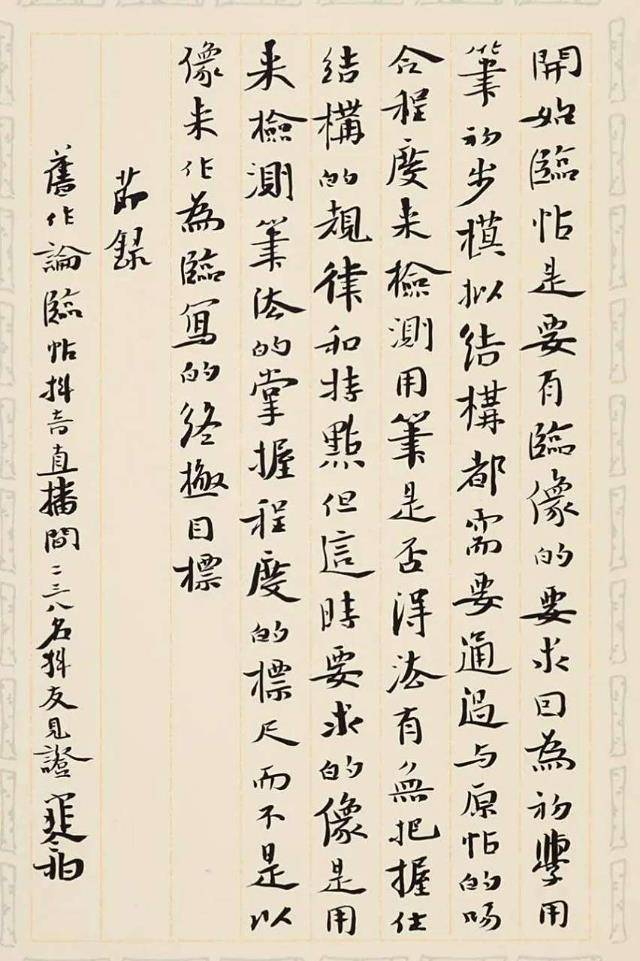 開始臨帖是要有臨像的要求囙為初學用
筆初步模拟結構都需要通過与原帖的吻
合程度来檢測用筆是否得法有無把握住
結構的規律和特點但這時要求的像是用
来檢測筆法的掌握程度的標尺而不是以
像来作為臨寫的終極目標
節録
舊作論臨帖抖音直播間二三八名抖友見證